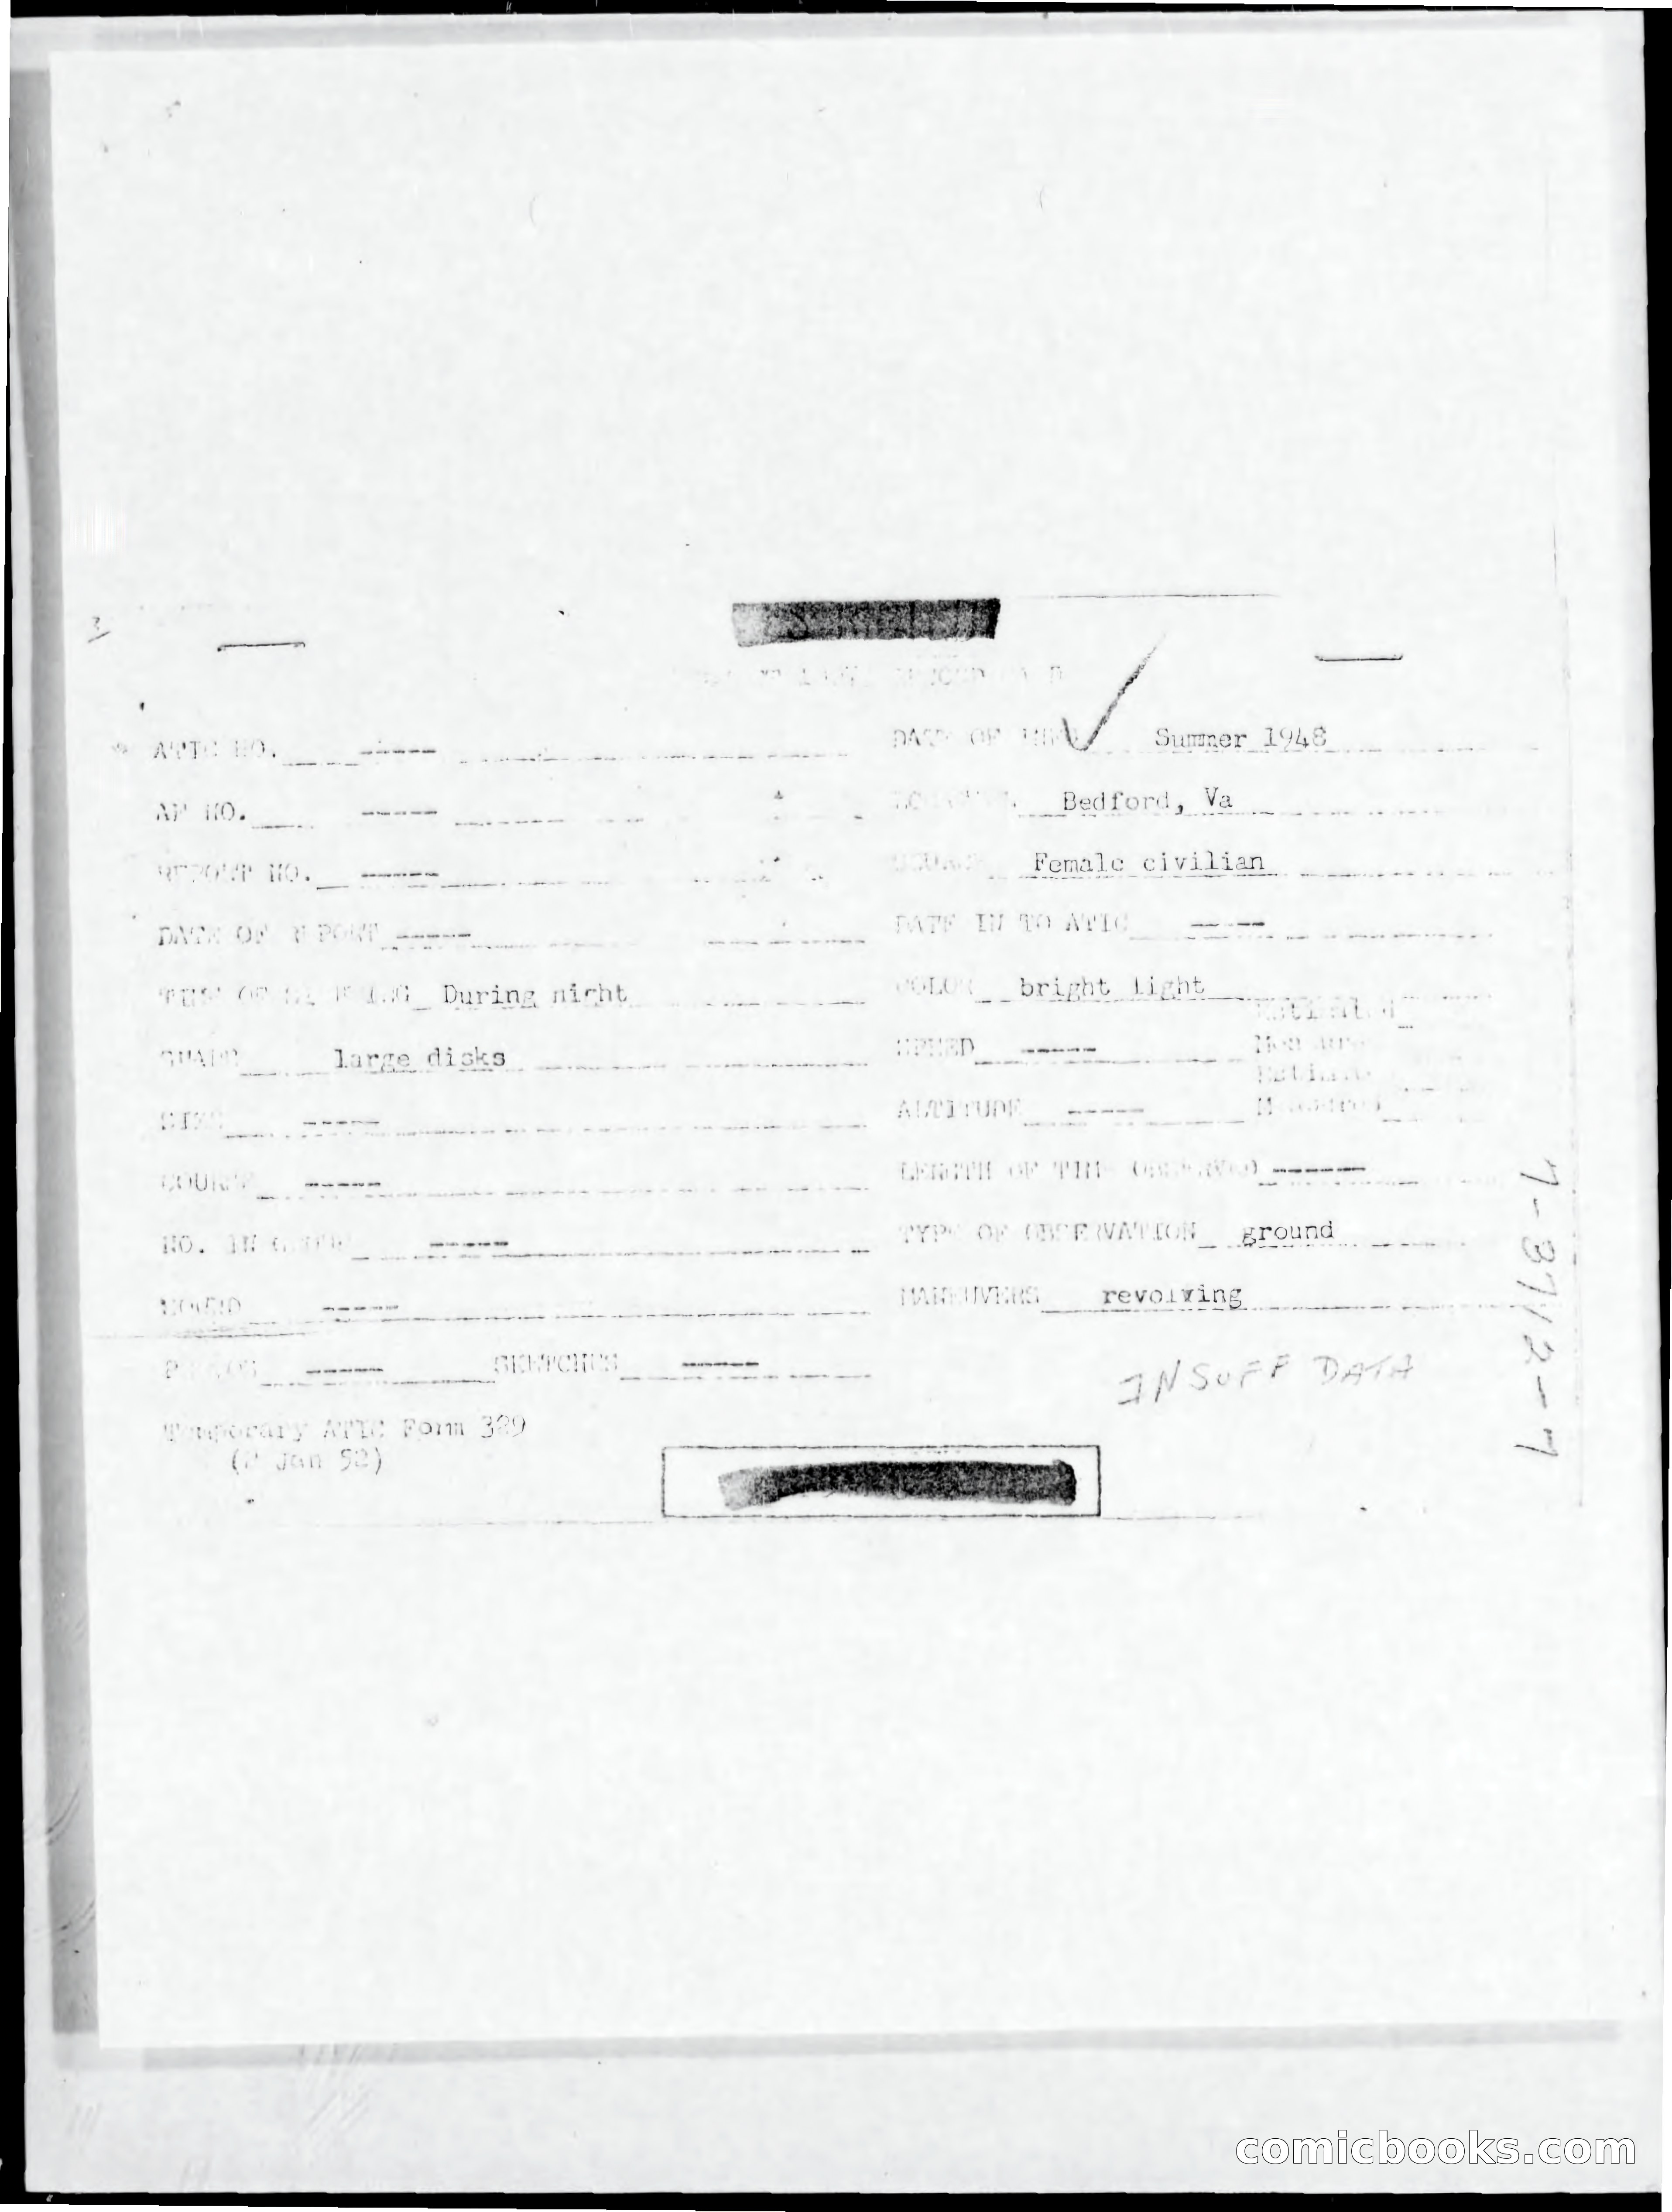 ATIC NO. ----- DATE OF INFO Summer 1948
AF NO. ----- LOCATION Bedford, Va
REPORT NO. ----- SOURCE Female civilian
DATE OF REPORT ----- DATE IN TO ATIC -----
TIME OF SIGHTING During night COLOR bright light
SHAPE large disks SPEED -----
Estimated
Measured
SIZE ----- ALTITUDE -----
Estimated
Measured
COURSE ----- LENGTH OF TIME OBSERVED ------
NO. IN GROUP ----- TYPE OF OBSERVATION ground
SOUND ----- MANEUVERS revolving
PHOTOS ----- SKETCHES -----
INSUFF DATA
Temporary ATIC Form 329
(2 Jan 52)
7-3712-7
comicbooks.com